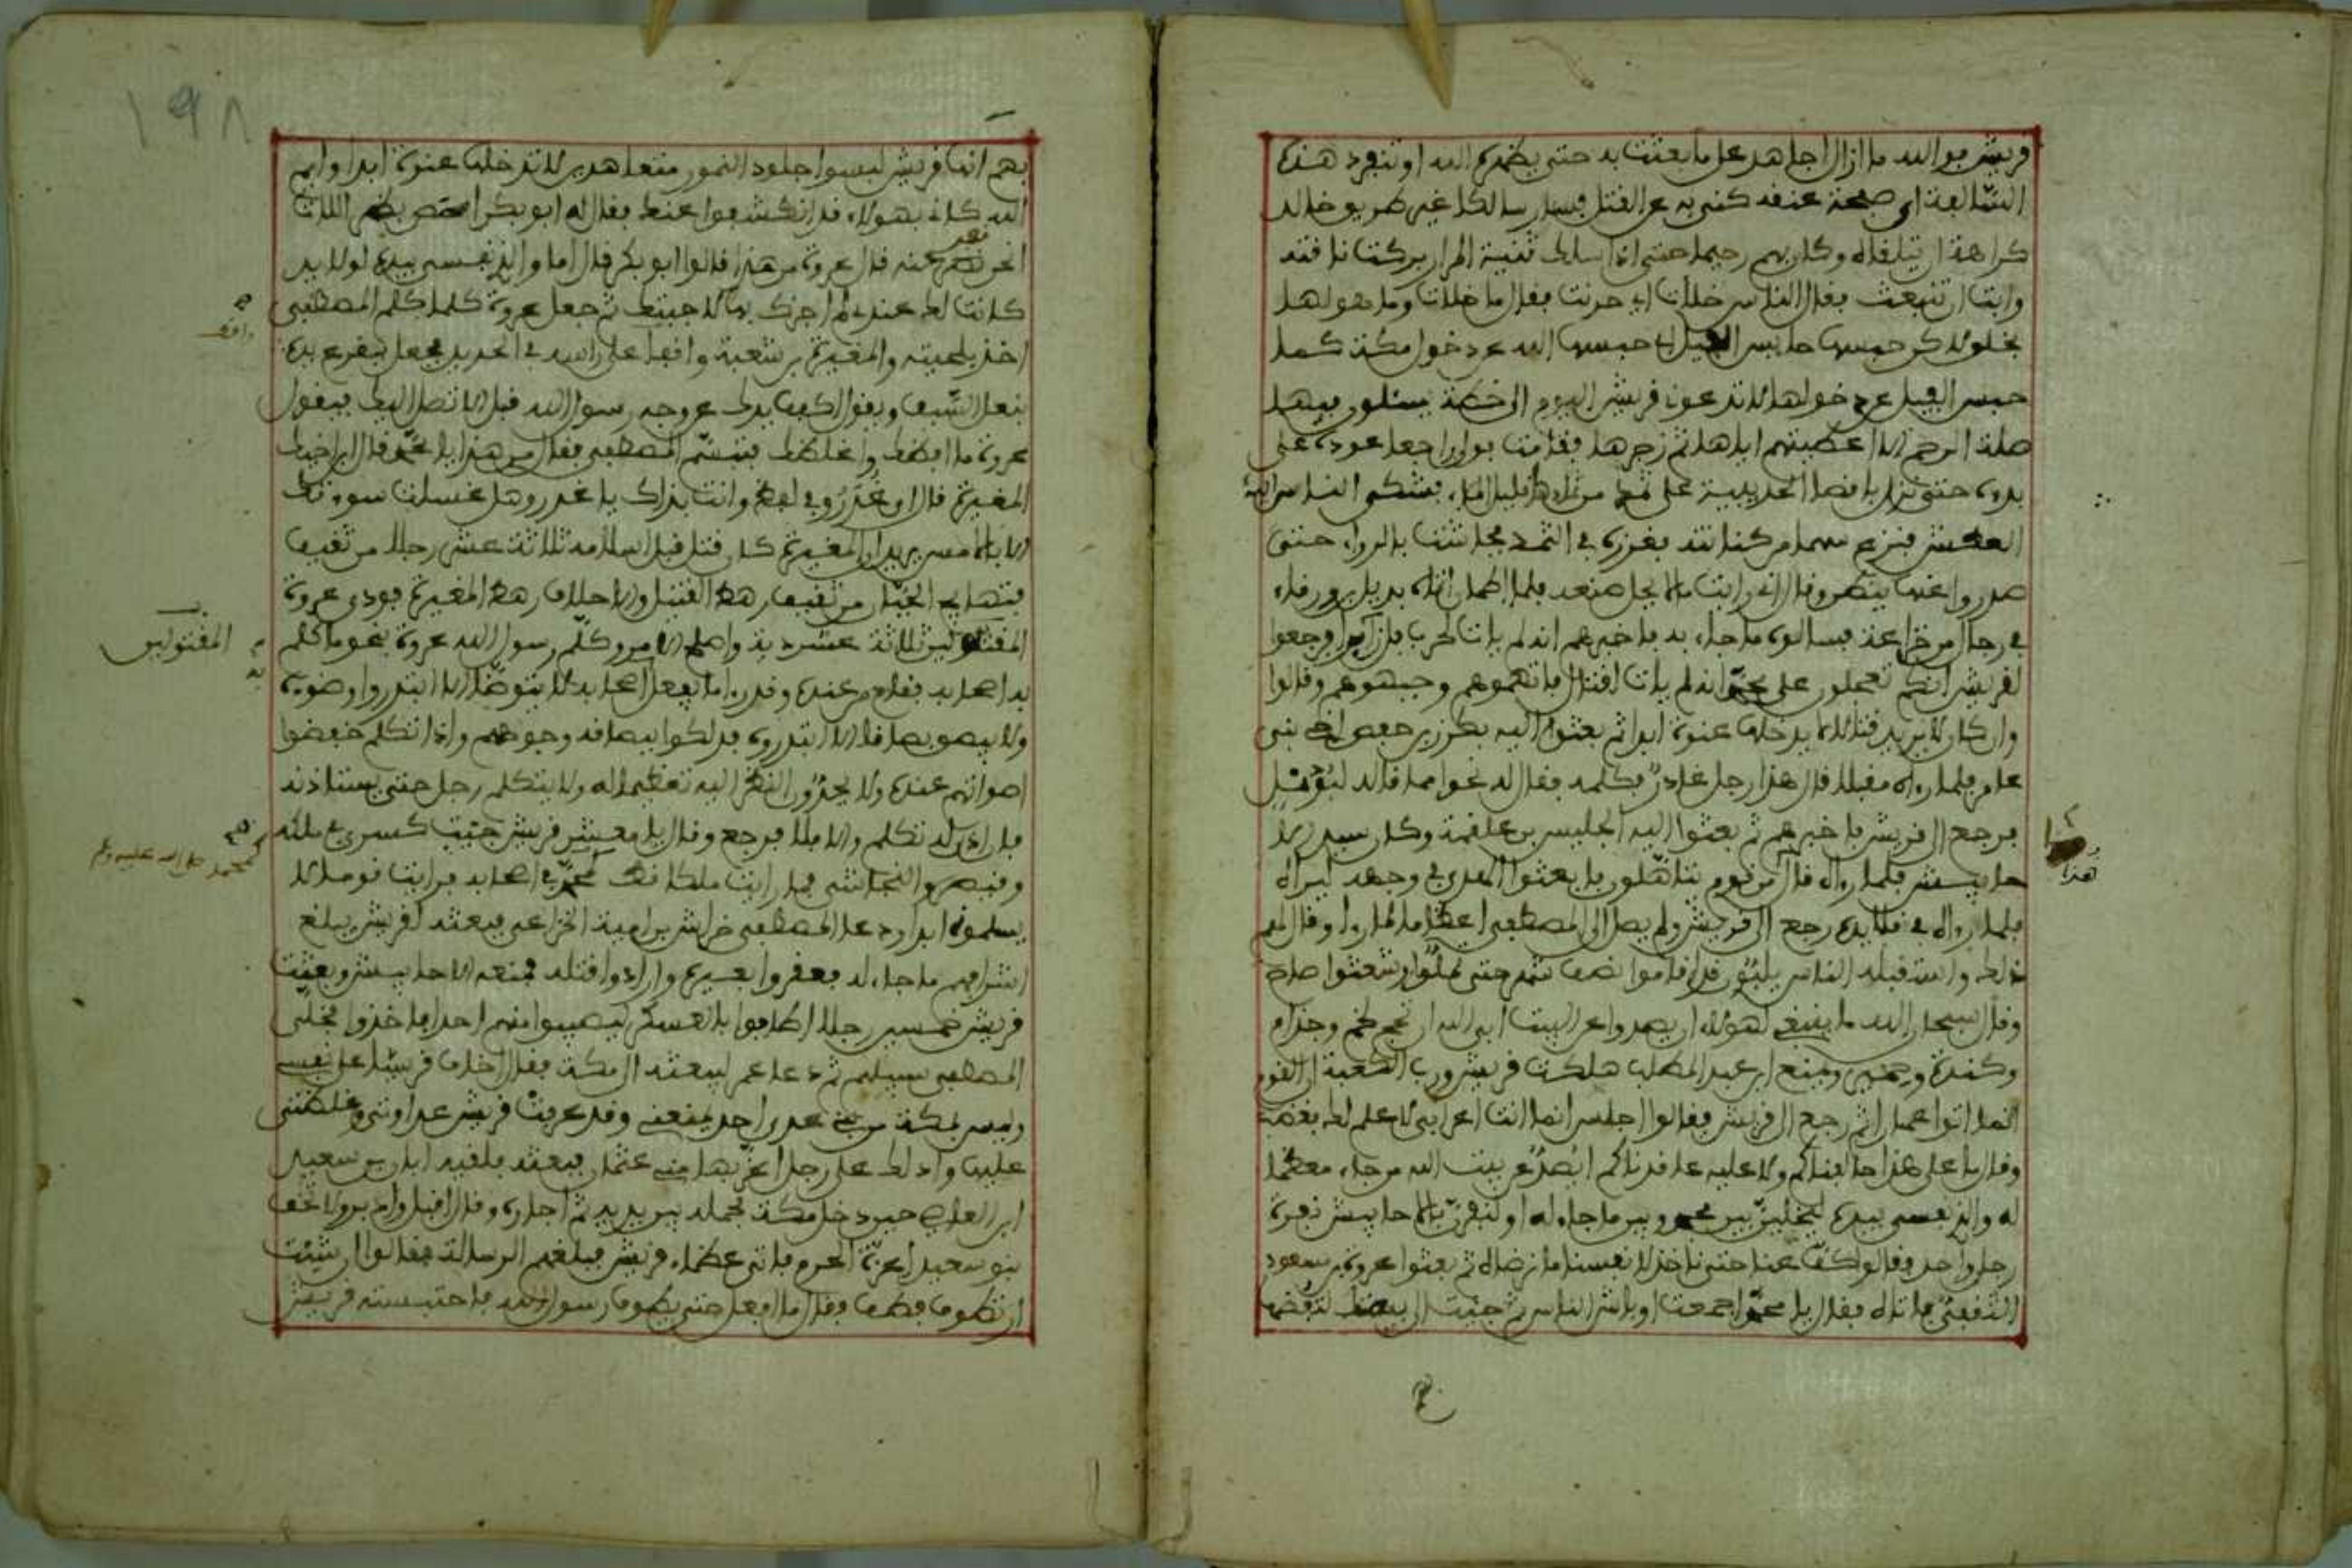 قريش فوالله ما ازال اجاهد على ما بعثت به حتى يظهره الله او تنفرد هذه
السالفة اي صفحة عنقه كنى به عن القتل فسار سالكا غير طريق خالد
كراهة ان يتلقاه وكان بهم رحيما حتى اذا سلك ثنية المرار بركت ناقته
وابت ان تنبعث فقال الناس خلات اي حرنت فقال ما خلات وما هو لها
بخلق ولاكن حبسها حابس الفيل اي حبسها الله عن دخول مكة كما
حبس الفيل عن دخولها لا تدعوني قريش اليوم الى خطة يسئلون فيها
صلة الرحم الا اعطيتهم اياها ثم زجرها فقامت فولى راجعا عوده على
بدءه حتى نزل باقصا الحديبية على ثمد من ثمادها قليل الماء فشكى الناس اليه
العطش فنزع سهما من كنانته فغرزه في الثمد فجاشت بالرواء حتى
صدروا عنها فلما اطمان اتاه بديل بن ورقاء
في رجال من خزاعة فسالوه ما جاء به فاخبرهم انه لم يات لحرب فرجعوا
لقريش انكم تعجلون على محمد انه لم يات لقتال فاتهموهم وجبهوهم وقالوا
وان كان لا يريد قتالا لا يدخلها عنوة ابدا ثم بعثوا اليه مكرز بن حفص اخي بني
عامر فلما رءاه مقبلا قال هذا رجل غادر فكلمه فقال له نحوا مما قال لبديل
فرجع الى قريش فاخبرهم ثم بعثوا اليه الحليس بن علقمة وكان سيد الا
حابيش فلما رءاه قال من قوم يتالهون فابعثوا الهدي في وجهه ليراه
فلما رءاه في قلايده رجع الى قريش ولم يصل الى المصطفى اعظاما لما راى وقال لهم
ذلك واستقبله الناس يلبون قد اقاموا نصف شهر حتى تفلوا وشعثوا صاح
وقال سبحان الله ما ينبغي لهؤلاء ان يصدوا عن البيت ابى الله ان تحج لخم وجذام
وكندة وحمير ويمنع ابن عبد المطلب هلكت قريش ورب الكعبة ان القوم
انما اتوا عمارا ثم رجع الى قريش فقالوا اجلس انما انت اعرابي لا علم لك فغضب
وقال ما على هذا حالفناكم ولا عليه عاقدناكم ايصد عن بيت الله من جاء معظما
له والذي نفسي بيده لتخلن بين محمد وبين ما جاء له او لنفرن بالاحابيش نفرة
رجل واحد فقالوا كف عنا حتى ناخذ لانفسنا ما نرضاه ثم بعثوا عروة بن مسعود
الثقفي فاتاه فقال يا محمد اجمعت اوباش الناس ثم جئت الى بيضتك لتفضها
هذا
١٩٨
بهم انها قريش لبسوا جلود النمور متعاهدين لا تدخلها عنوة ابدا وايم
الله كاني بهؤلاء قد انكشفوا عنك فقال له ابو بكر امصص بظر اللات
انحن نفر عنه قال عروة من هذا قالوا ابو بكر قال اما والذي نفسي بيده لولا يد
كانت لك عندي لم اجزك بها لاجبتك ثم جعل عروة كلما كلم المصطفى
اخذ بلحيته والمغيرة بن شعبة واقفا على راسه في الحديد فجعل يقرع يده
بنعل السيف ويقول اكفف يدك عن وجه رسول الله قبل الا تصل اليك فيقول
عروة ما افظك واغلظك فتبسم المصطفى فقال من هذا يا محمد قال ابن اخيك
المغيرة قال اي غدر وهل غسلت سوءتك
الا بالامس يريد ان المغيرة كان قتل قبل اسلامه ثلاثة عشر رجلا من ثقيف
فتهايج الحيان من ثقيف رهط القتلى والاحلاف رهط المغيرة فودى عروة
المقتولين ثلاثة عشر دية واصلح الامر وكلم رسول الله عروة بنحو ما كلم
به اصحابه فقام من عنده وقد رءا ما يفعل اصحابه لا يتوضا الا ابتدروا وضوءه
ولا يبصق بصاقا الا ابتدروه فدلكوا ببصاقه وجوههم واذا تكلم خفضوا
اصواتهم عنده ولا يحدون النظر اليه تعظيما له ولا يتكلم رجل حتى يستاذنه
فان اذن له تكلم والا فلا فرجع وقال يا معشر قريش جيت كسرى في ملكه
وقيصر والنجاشي فما رايت ملكا قط كمحمد في اصحابه فرايت قوما لا
يسلمونه ابدا ودعا المصطفى خراش بن امية الخزاعي فبعثه لقريش يبلغ
اشرافهم ما جاء له فعقروا بعيره وارادوا قتله فمنعه الاحابيش وبعثت
قريش خمسين رجلا اطافوا بالعسكر ليصيبوا منهم احدا فاخذوا فخلى
المصطفى سبيلهم ثم دعا عمر ليبعثه الى مكة فقال اخاف قريشا على نفسي
وليس بمكة من بني عدي احد يمنعني وقد عرفت قريش عداوتي وغلظتي
عليها وادلك على رجل اعز بها مني عثمان فبعثه فلقيه ابان بن سعيد
ابن العاصي حين دخل مكة فحمله بين يديه ثم اجاره وقال اقبل وادبر ولا تخف
بنو سعيد اعزة الحرم فاتى عظماء قريش فبلغهم الرسالة فقالوا ان شئت
ان تطوف فطف فقال ما افعل حتى يطوف رسول الله فاحتبسته قريش
واقف
المقتولين
كمحمد صلى الله عليه وسلم